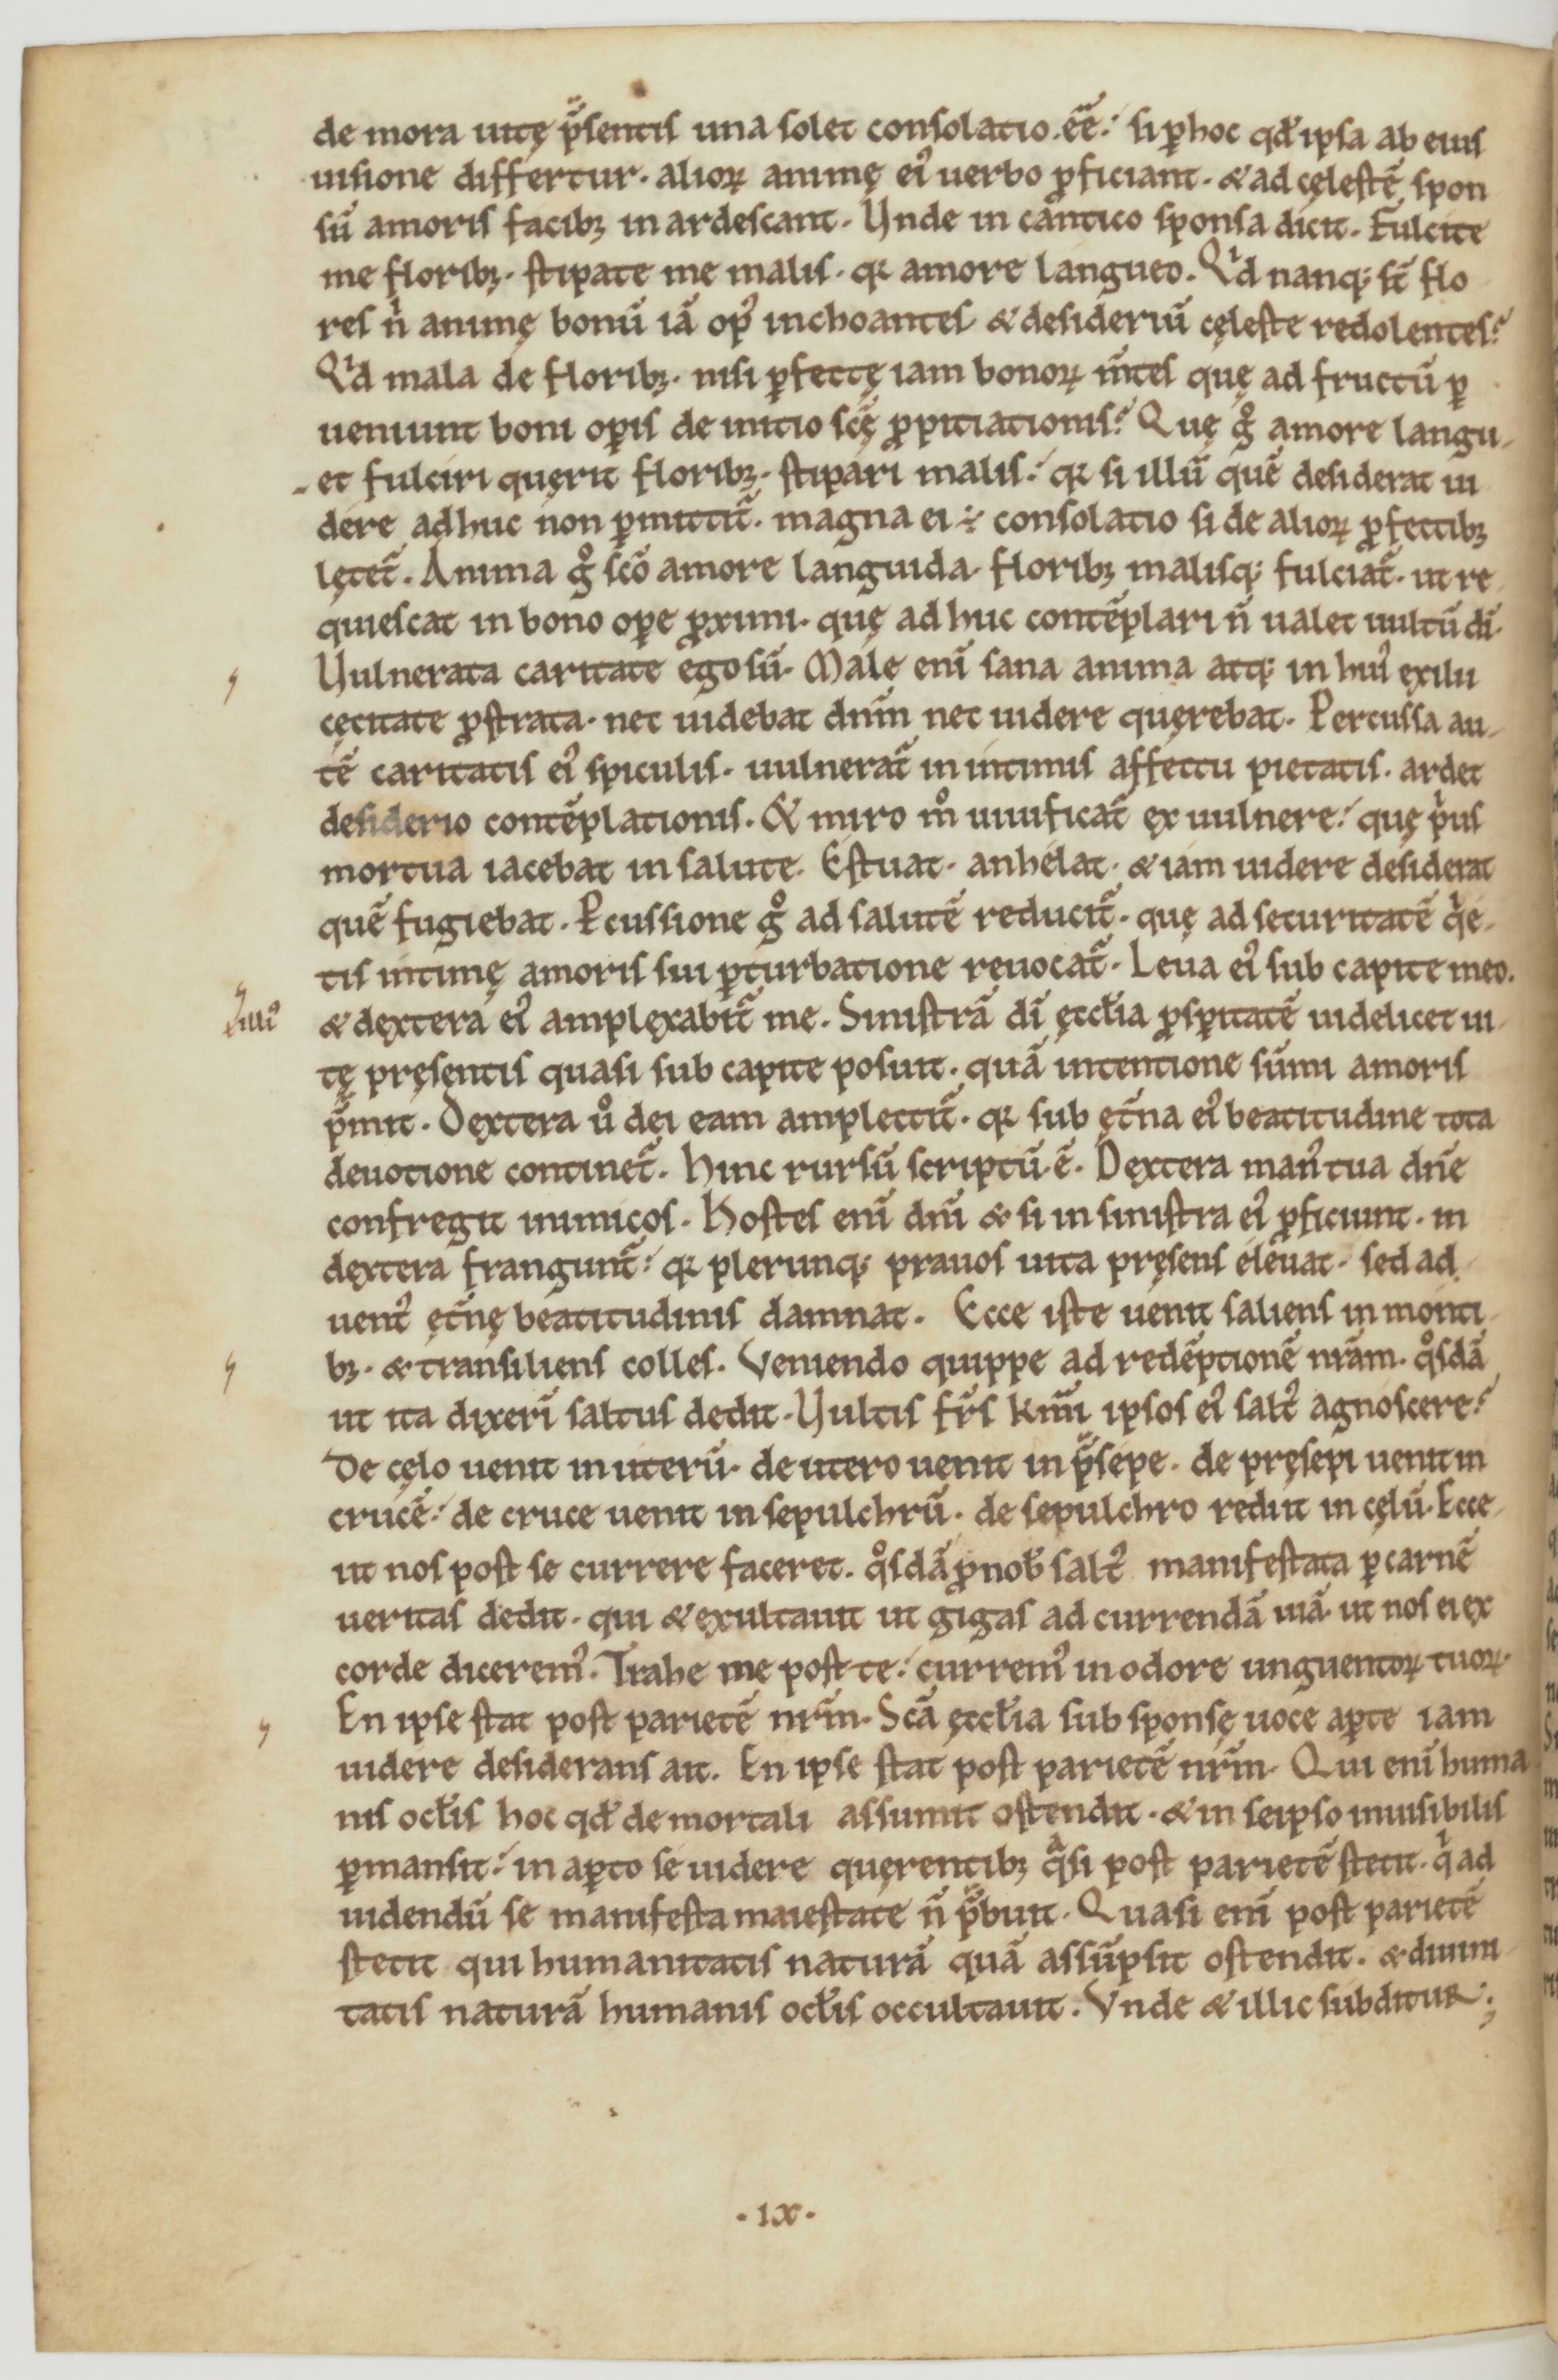 de mora uitę p̄sentis una solet consolatio.eē. si ꝑ hoc qđ ipsa ab eius
uisione differtur. alioꝝ animę eiꝰ uerbo ꝓficiant. & ad cęlestē spon
sū amoris facibꝫ in ardescant. Unde in cantico sponsa dicit. Fulcite
me floribꝫ. stipate me malis. qꝛ amore langueo. Qͥd nanqꝫ st̄ flo
res nͥ animę bonū iā opꝰ inchoantes & desideriū cęleste redolentes?
Qͥd mala de floribꝫ. nisi ꝑfectę iam bonoꝝ m̄tes quę ad fructū ꝑ
ueniunt boni oꝑis de initio scę̄ ꝓpitiationis? Quę gͦ amore langu-
-et fulciri quęrit floribꝫ. stipari malis. qꝛ si illū quē desiderat ui
dere adhuc non ꝑmittit᷑. magna ei ÷ consolatio si de alioꝝ ꝓfectibꝫ
lętet᷑. Anima gͦ sco᷑ amore languida. floribꝫ malisqꝫ fulciat᷑. ut re
quiescat in bono oꝑe ꝓximi. quę ad huc contēplari n̄ ualet uultū dī.
Uulnerata caritate ego sū. Malę enī sana anima atqꝫ in huiꝰ exilii
cęcitate ꝓstrata. nec uidebat dnm̄ nec uidere quęrebat. Percussa au-
tē caritatis eiꝰ spiculis. uulnerat᷑ in intimis affectu pietatis. ardet
desiderio contēplationis. & miro mͦ uiuificat᷑ ex uulnere. quę pͥus
mortua iacebat in salute. Estuat. anhelat. & iam uidere desiderat
quē fugiebat. Ꝑcussione gͦ ad salutē reducit᷑. quę ad securitatē qͥe-
tis intimę amoris sui ꝑturbatione reuocat᷑. Leua eiꝰ sub capite meo.
& dextera eiꝰ amplexabit᷑ me. Sinistrā dī ęccl̄ia ꝓsꝑitatē uidelicet ui-
tę pręsentis quasi sub capite posuit. quā intentione sūmi amoris
p̄mit. Dextera uͦ dei eam amplectit᷑. qꝛ sub ęt̄na eiꝰ beatitudine tota
deuotione continet᷑. Hinc rursū scriptū.ē. Dextera manꝰ tua dn̄e
confregit inimicos. Hostes enī dn̄i & si in sinistra eiꝰ ꝓficiunt. in
dextera frangunt᷑. qꝛ plerunqꝫ prauos uita pręsens eleuat. sed ad
uentꝰ ęt̄nę beatitudinis damnat. Ecce iste uenit saliens in monti
bꝫ. & transiliens colles. Veniendo quippe ad redēptionē nrām. qͦsdā
ut ita dixerī saltus dedit. Uultis fr̄s km̄i ipsos eiꝰ saltꝰ agnoscere?
De cęlo uenit in uterū. de utero uenit in p̄sepe. de pręsepi uenit in
crucē. de cruce uenit in sepulchrū. de sepulchro rediit in cęlū. Ecce
ut nos post se currere faceret. qͦsdā ꝓ nob̄ saltꝰ manifestata ꝑ carnē
ueritas dedit. qui & exultauit ut gigas ad currendā uiā. ut nos ei ex
corde diceremꝰ. Trahe me post te. curremꝰ in odore unguentoꝝ tuoꝝ.
En ipse stat post parietē nrm̄. Scā ęccl̄ia sub sponsę uoce aꝑte iam
uidere desiderans ait. En ipse stat post parietē nrm̄. Qui enī huma
nis ocl̄is hoc qđ de mortali assumit ostendit. & in seipso inuisibilis
ꝑmansit. in aꝑto se uidere quęrentibꝫ qͣsi post parietē stetit. qͥ ad
uidendū se manifesta maiestate n̄ p̄buit. Quasi enī post parietē
stetit qui humanitatis naturā quā assūpsit ostendit. & diuini
tatis naturā humanis ocl̄is occultauit. Vnde & illic subditur;
.ix.